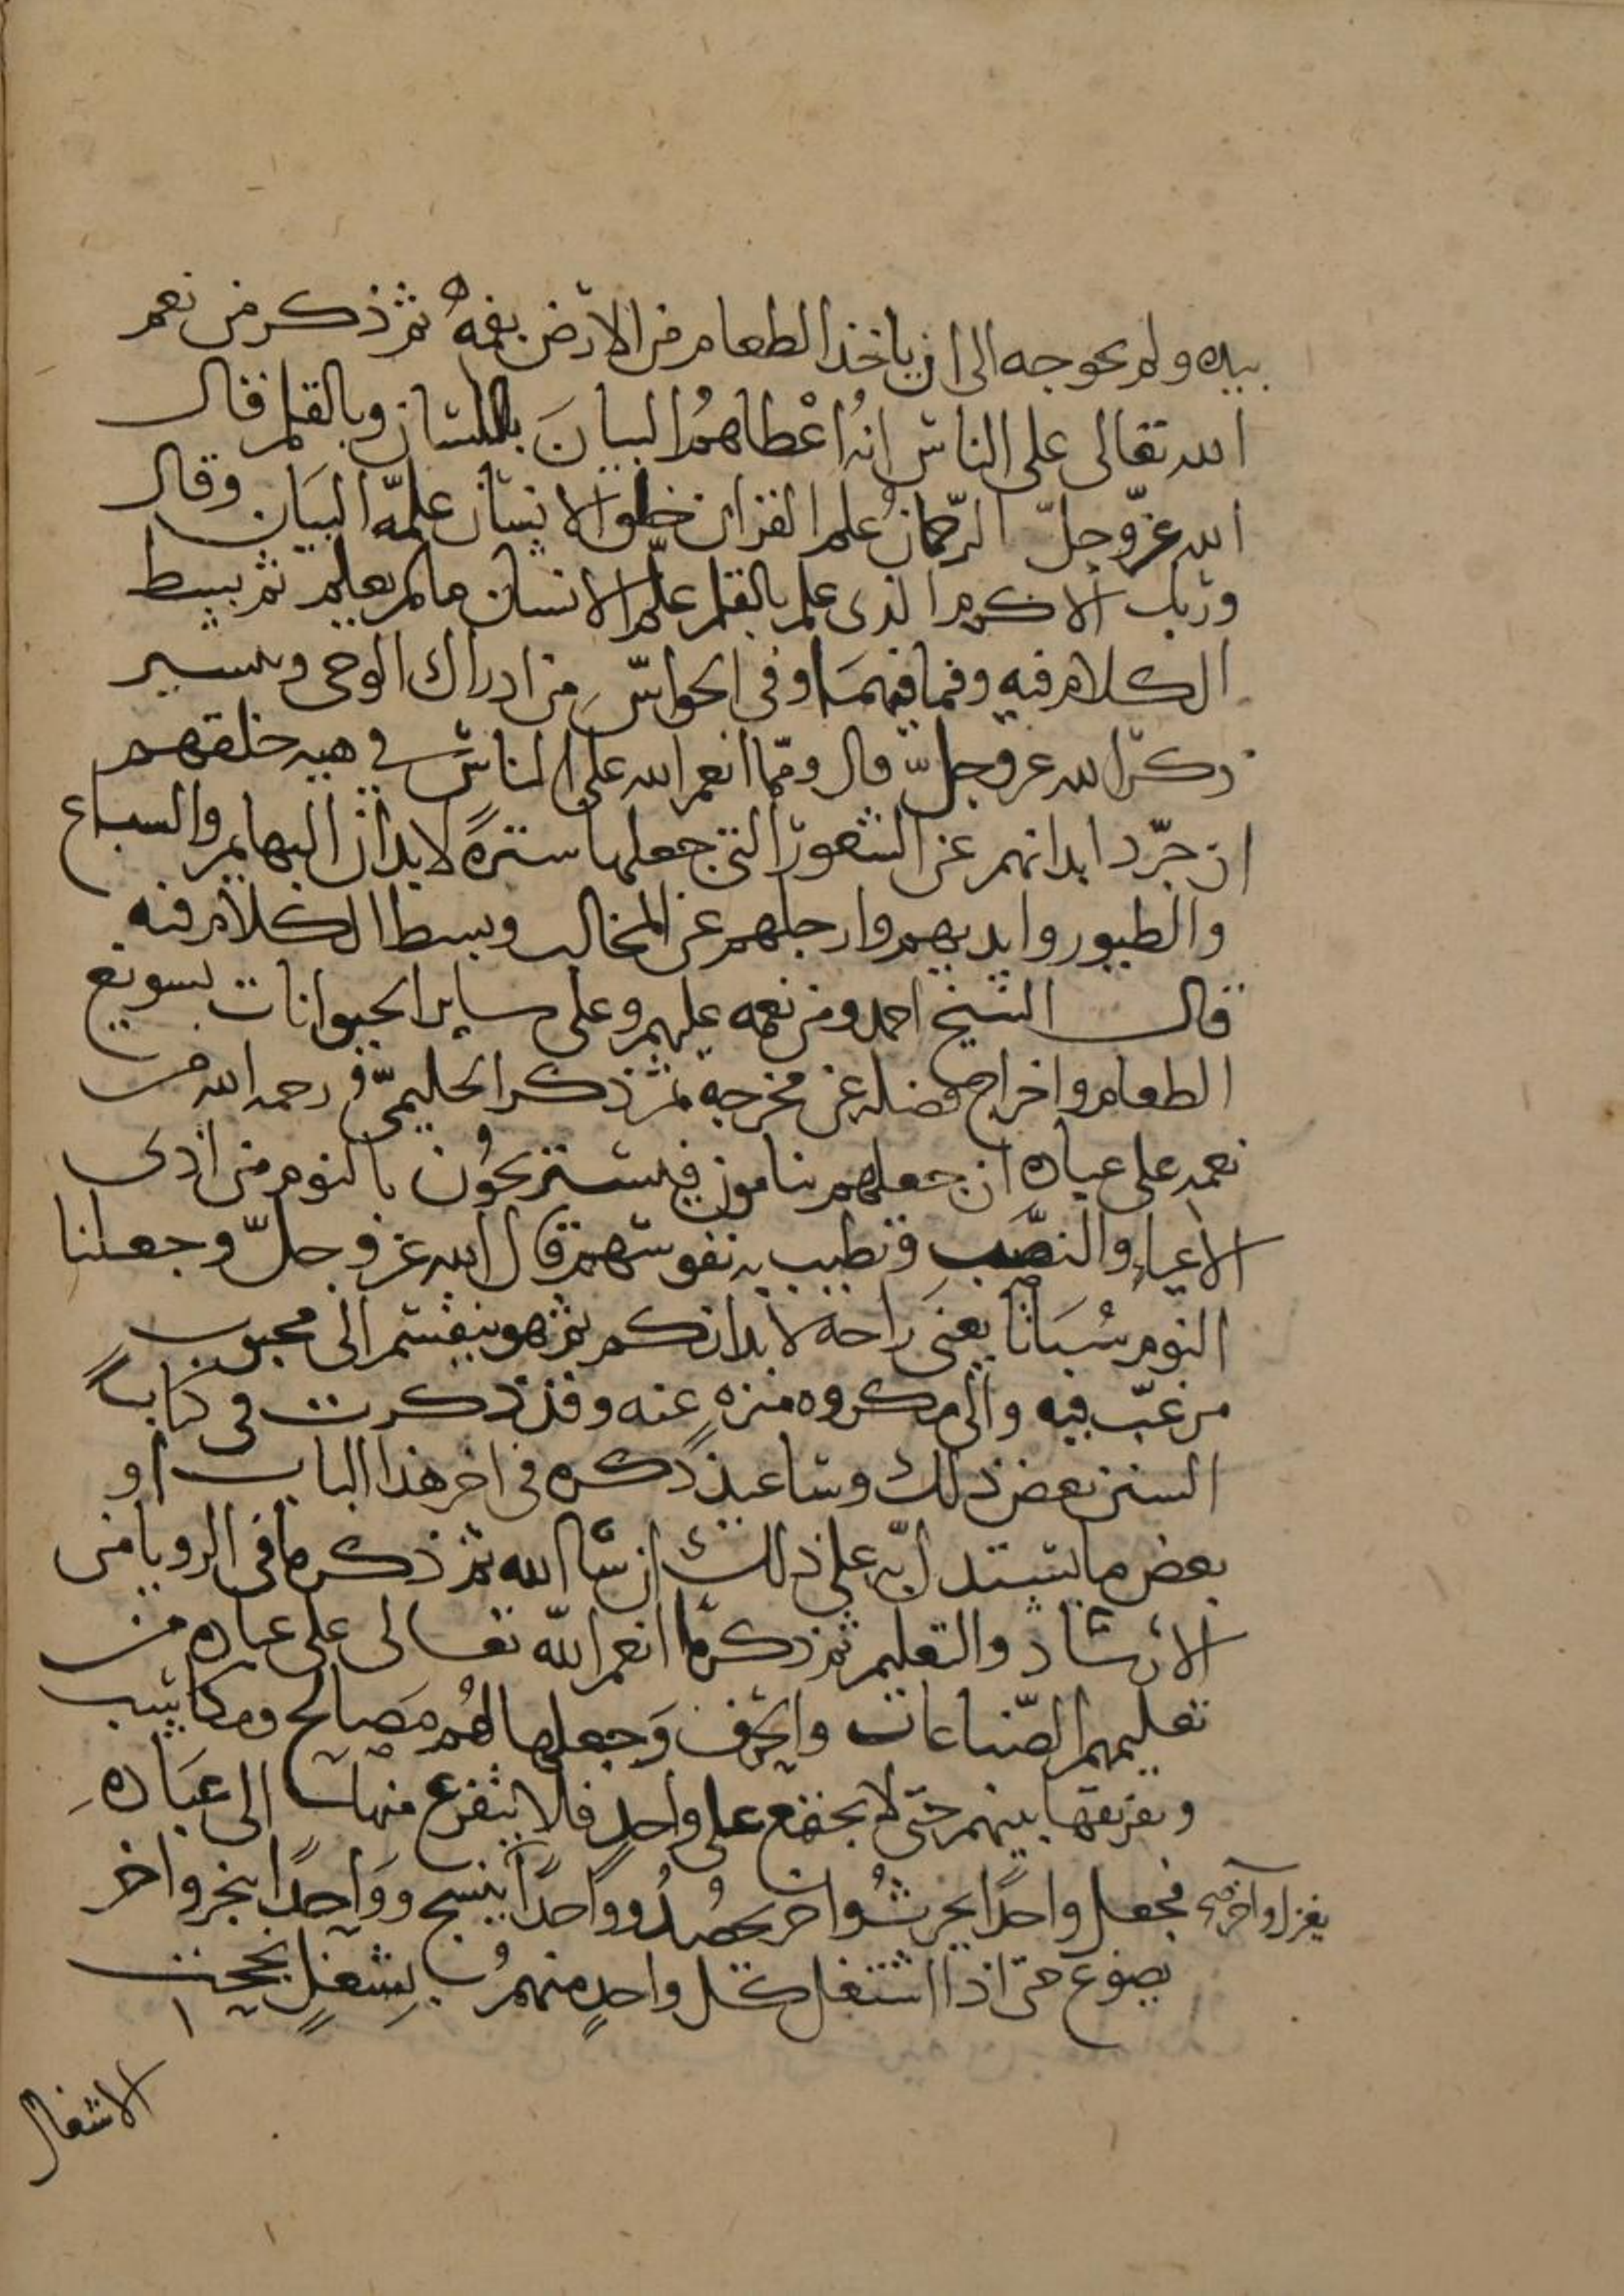 بيده ولم يحوجه الى ان ياخذ الطعام من الارض بفمه ثم ذكر من نعم
الله تعالى على الناس انه اعْطاهمُ البيانَ باللسان وبالقلم فقال
الله عزّ وجلّ الرّحمانُ علم القران خلق الانسان علمّه البيَان وقال
وربك الاكرم الذى علم بالقلم علّم الانسان ما لم يعلم ثم بسط
الكلام فيه وفيما فيهمَا وفى الحواسّ من ادراك الوحى وتفسير
ذكر الله عز وجلّ قال وممّا انعم الله على الناس فى هيئه خلقهم
ان جرّد ابدانهم عن الشعور التى جعلها سترةً لابدان البهايم والسباع
والطيور وايديهم وارجلهم عن المخالب وبسط الكلام فيه
قال الشيخ احمد ومن نعمه عليهم وعلى ساير الحيوانات تسويغ
الطعام واخراج فضله عن مخرجه ثم ذكر الحليمىّ رحمه الله من
نعمه على عباده ان جعلهم ينامون فيستريحُون بالنوم من اذى
الاعياء والنصَب وتطيب به نفوسهم قال الله عز وجلّ وجعلنا
النوم سُبَاتا يعنى راحة لابدانكم ثم هو ينقسم الى محبوب
مرغّب فيه والى مكروه منزه عنه وقد ذكرت فى كتاب
السنن بعض ذلك وساعيد ذكره فى اخر هذا الباب او
بعض ما يستدل به على ذلك ان شا الله ثم ذكر ما فى الرويا من
الارشاد والتعليم ثم ذكر ما انعم الله تعالى على عباده من
تعليمهم الصّناعات والحرف وَجعلها لهُم مَصالح ومكاسب
وتفريقها بينهم حتى لا يجتمع على واحدٍ فلا يتفرع منها الى عبَادهِ
فجعل واحدًا يحرثُ واخر يحصُدُ وواحدًا ينسج ووَاحدًا يتجر واخر
يغزل وآخر صح
يصوغ حتى اذا اشتغل كل واحدٍ منهم بِشغلٍ
الاشغال